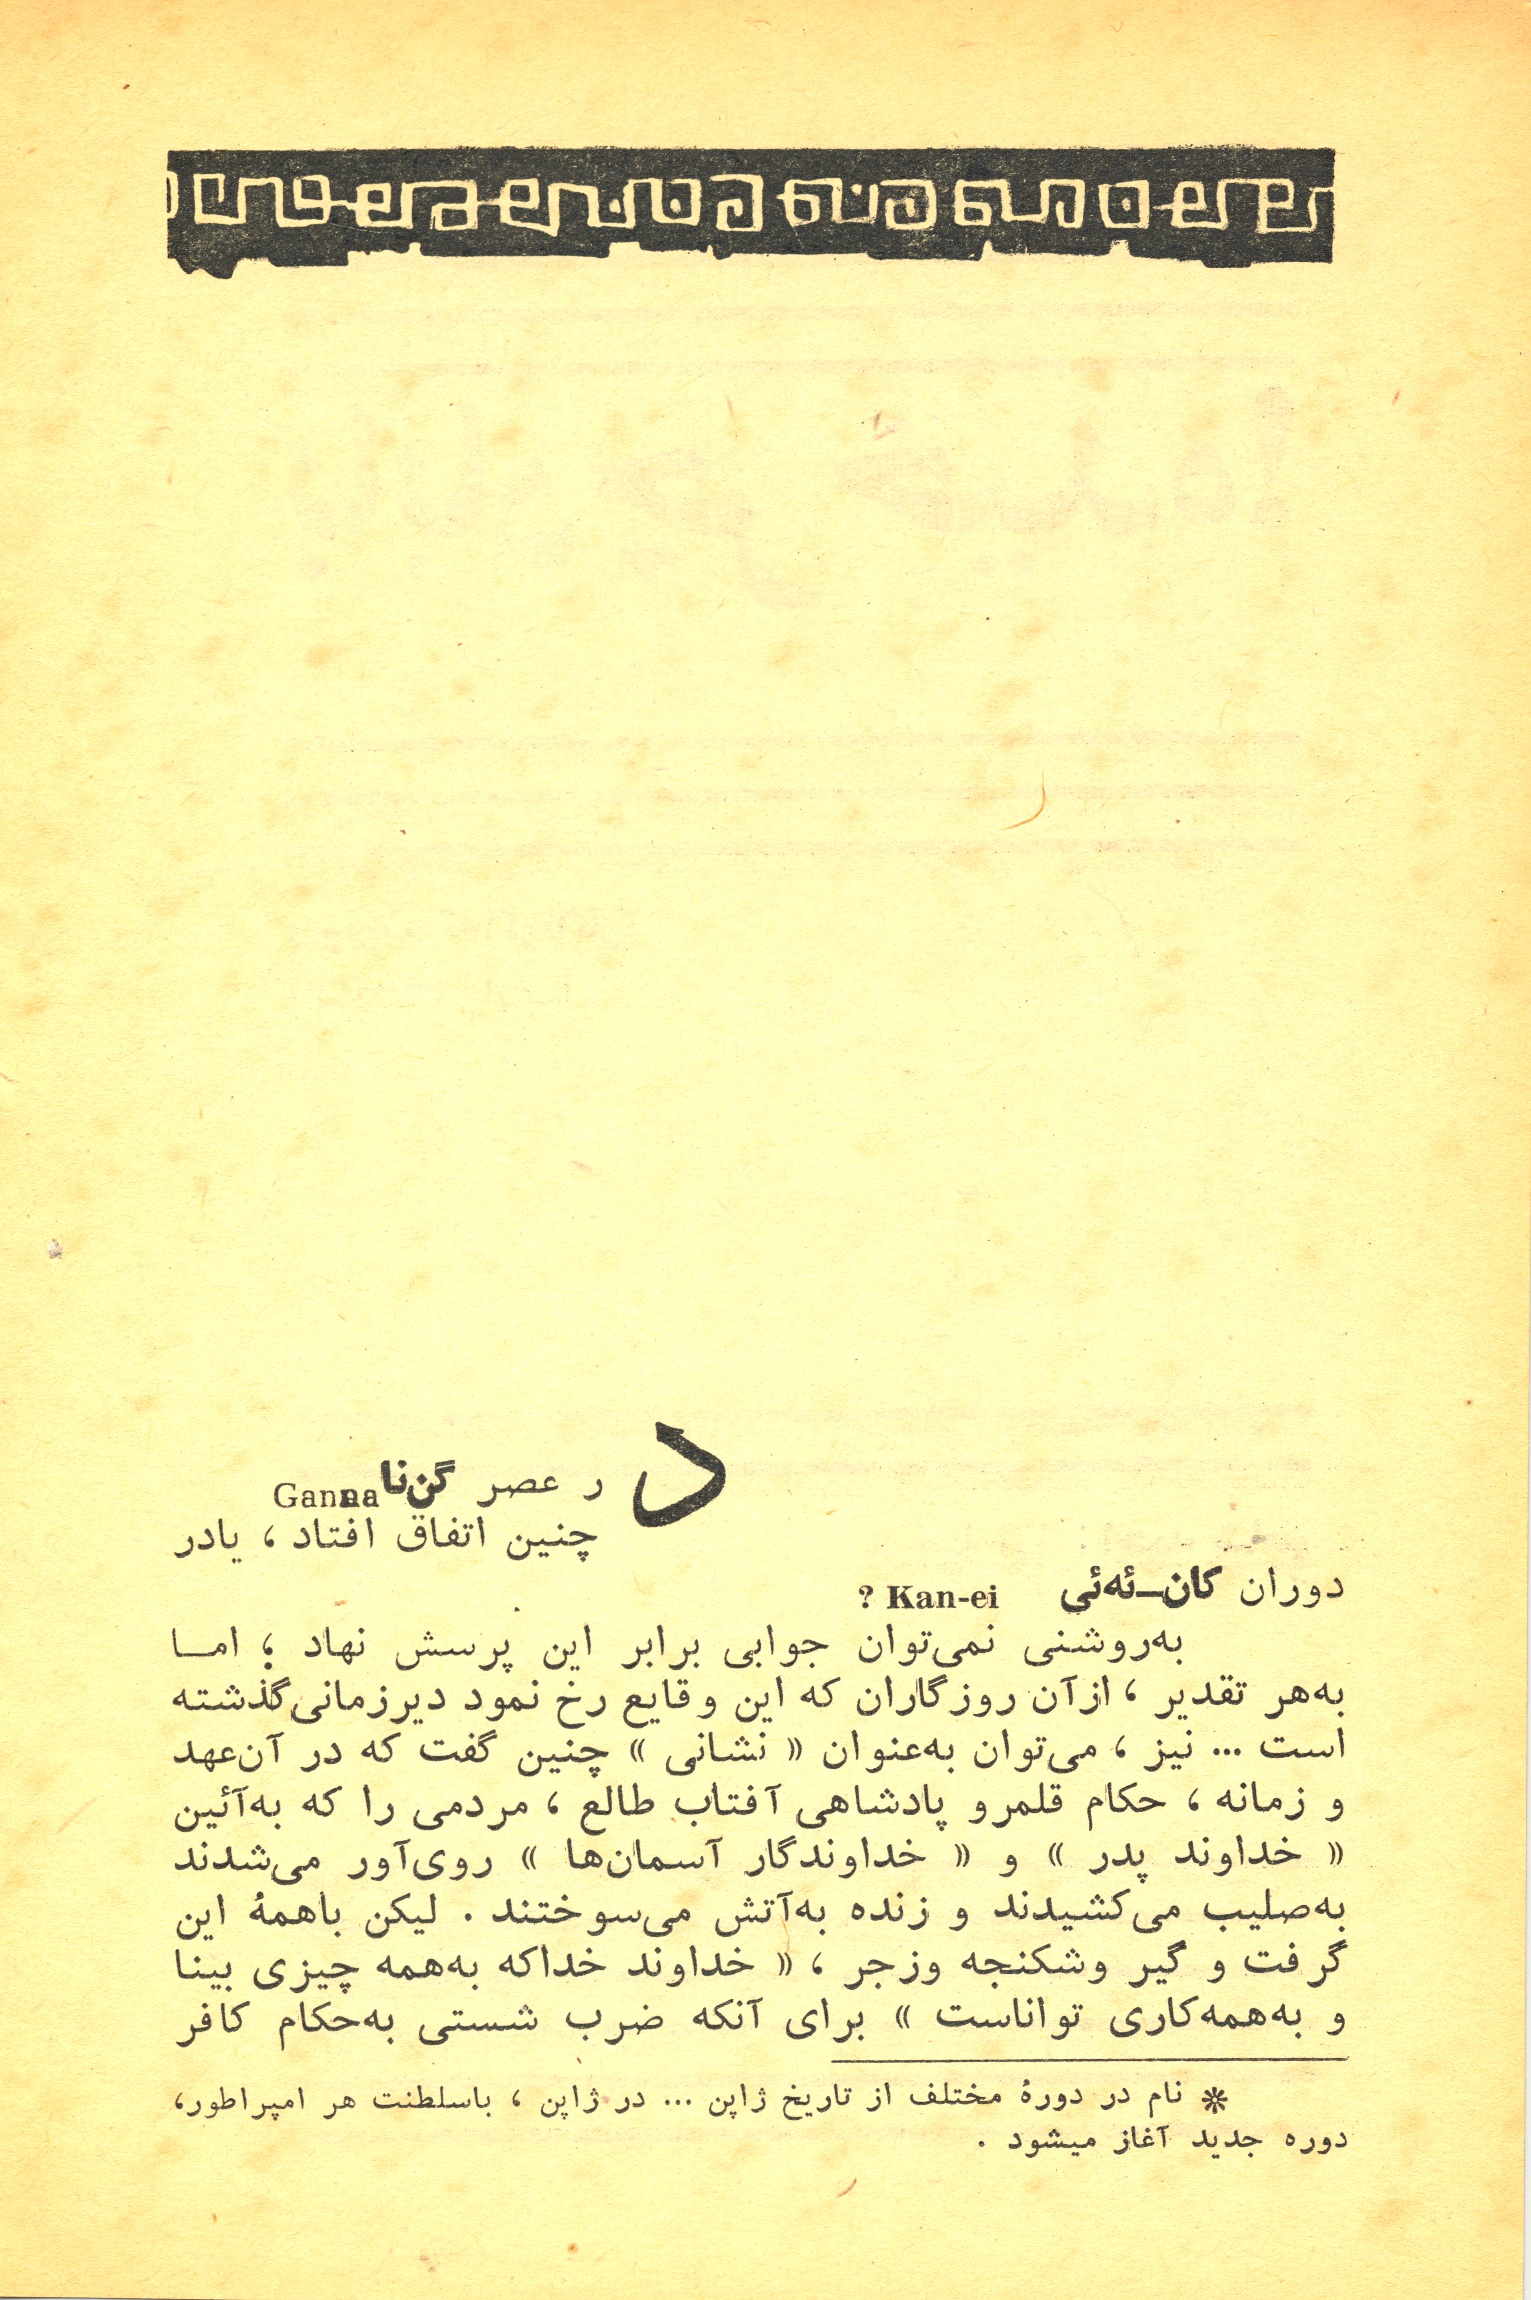 در عصر گن‌نا Ganna
چنین اتفاق افتاد ، یادر
دوران کان-ئه‌ئی Kan-ei ?
به‌روشنی نمی‌توان جوابی برابر این پرسش نهاد ؛ امـا
به‌هر تقدیر ، ازآن روزگاران که این وقایع رخ نمود دیرزمانی‌گذشته
است ... نیز ، می‌توان به‌عنوان « نشانی » چنین گفت که در آن‌عهد
و زمانه ، حکام قلمرو پادشاهی آفتاب طالع ، مردمی را که به‌آئین
« خداوند پدر » و « خداوندگار آسمان‌ها » روی‌آور می‌شدند
به‌صلیب می‌کشیدند و زنده به‌آتش می‌سوختند . لیکن باهمهٔ این
گرفت و گیر وشکنجه وزجر ، « خداوند خداکه به‌همه چیزی بینا
و به‌همه‌کاری تواناست » برای آنکه ضرب شستی به‌حکام کافر
* نام در دورهٔ مختلف از تاریخ ژاپن ... در ژاپن ، باسلطنت هر امپراطور،
دوره جدید آغاز میشود .